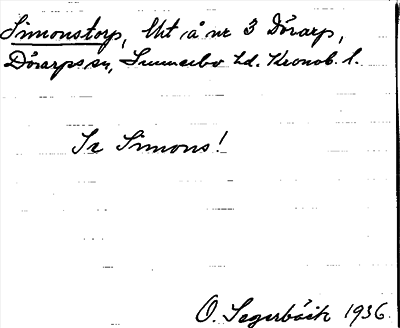 Simonstorp, lht å nr 3 Dörarp,
Dörarps sn, Sunnerbo hd. Kronob. l.
Se Simons!
O. Segerbäck 1936.